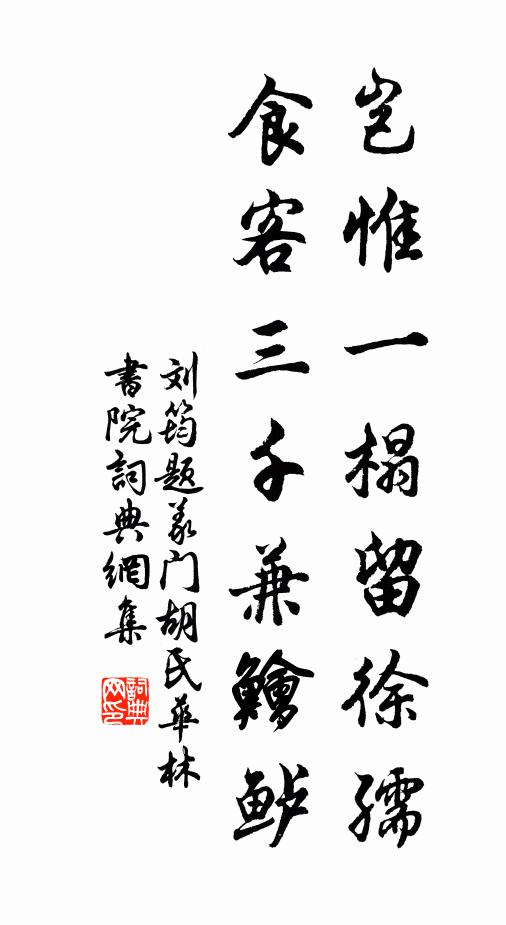 岂惟一榻留徐孺
食客三千兼鱠鲈
刘筠题义门胡氏华林
書院詞典網集
詞典
网印